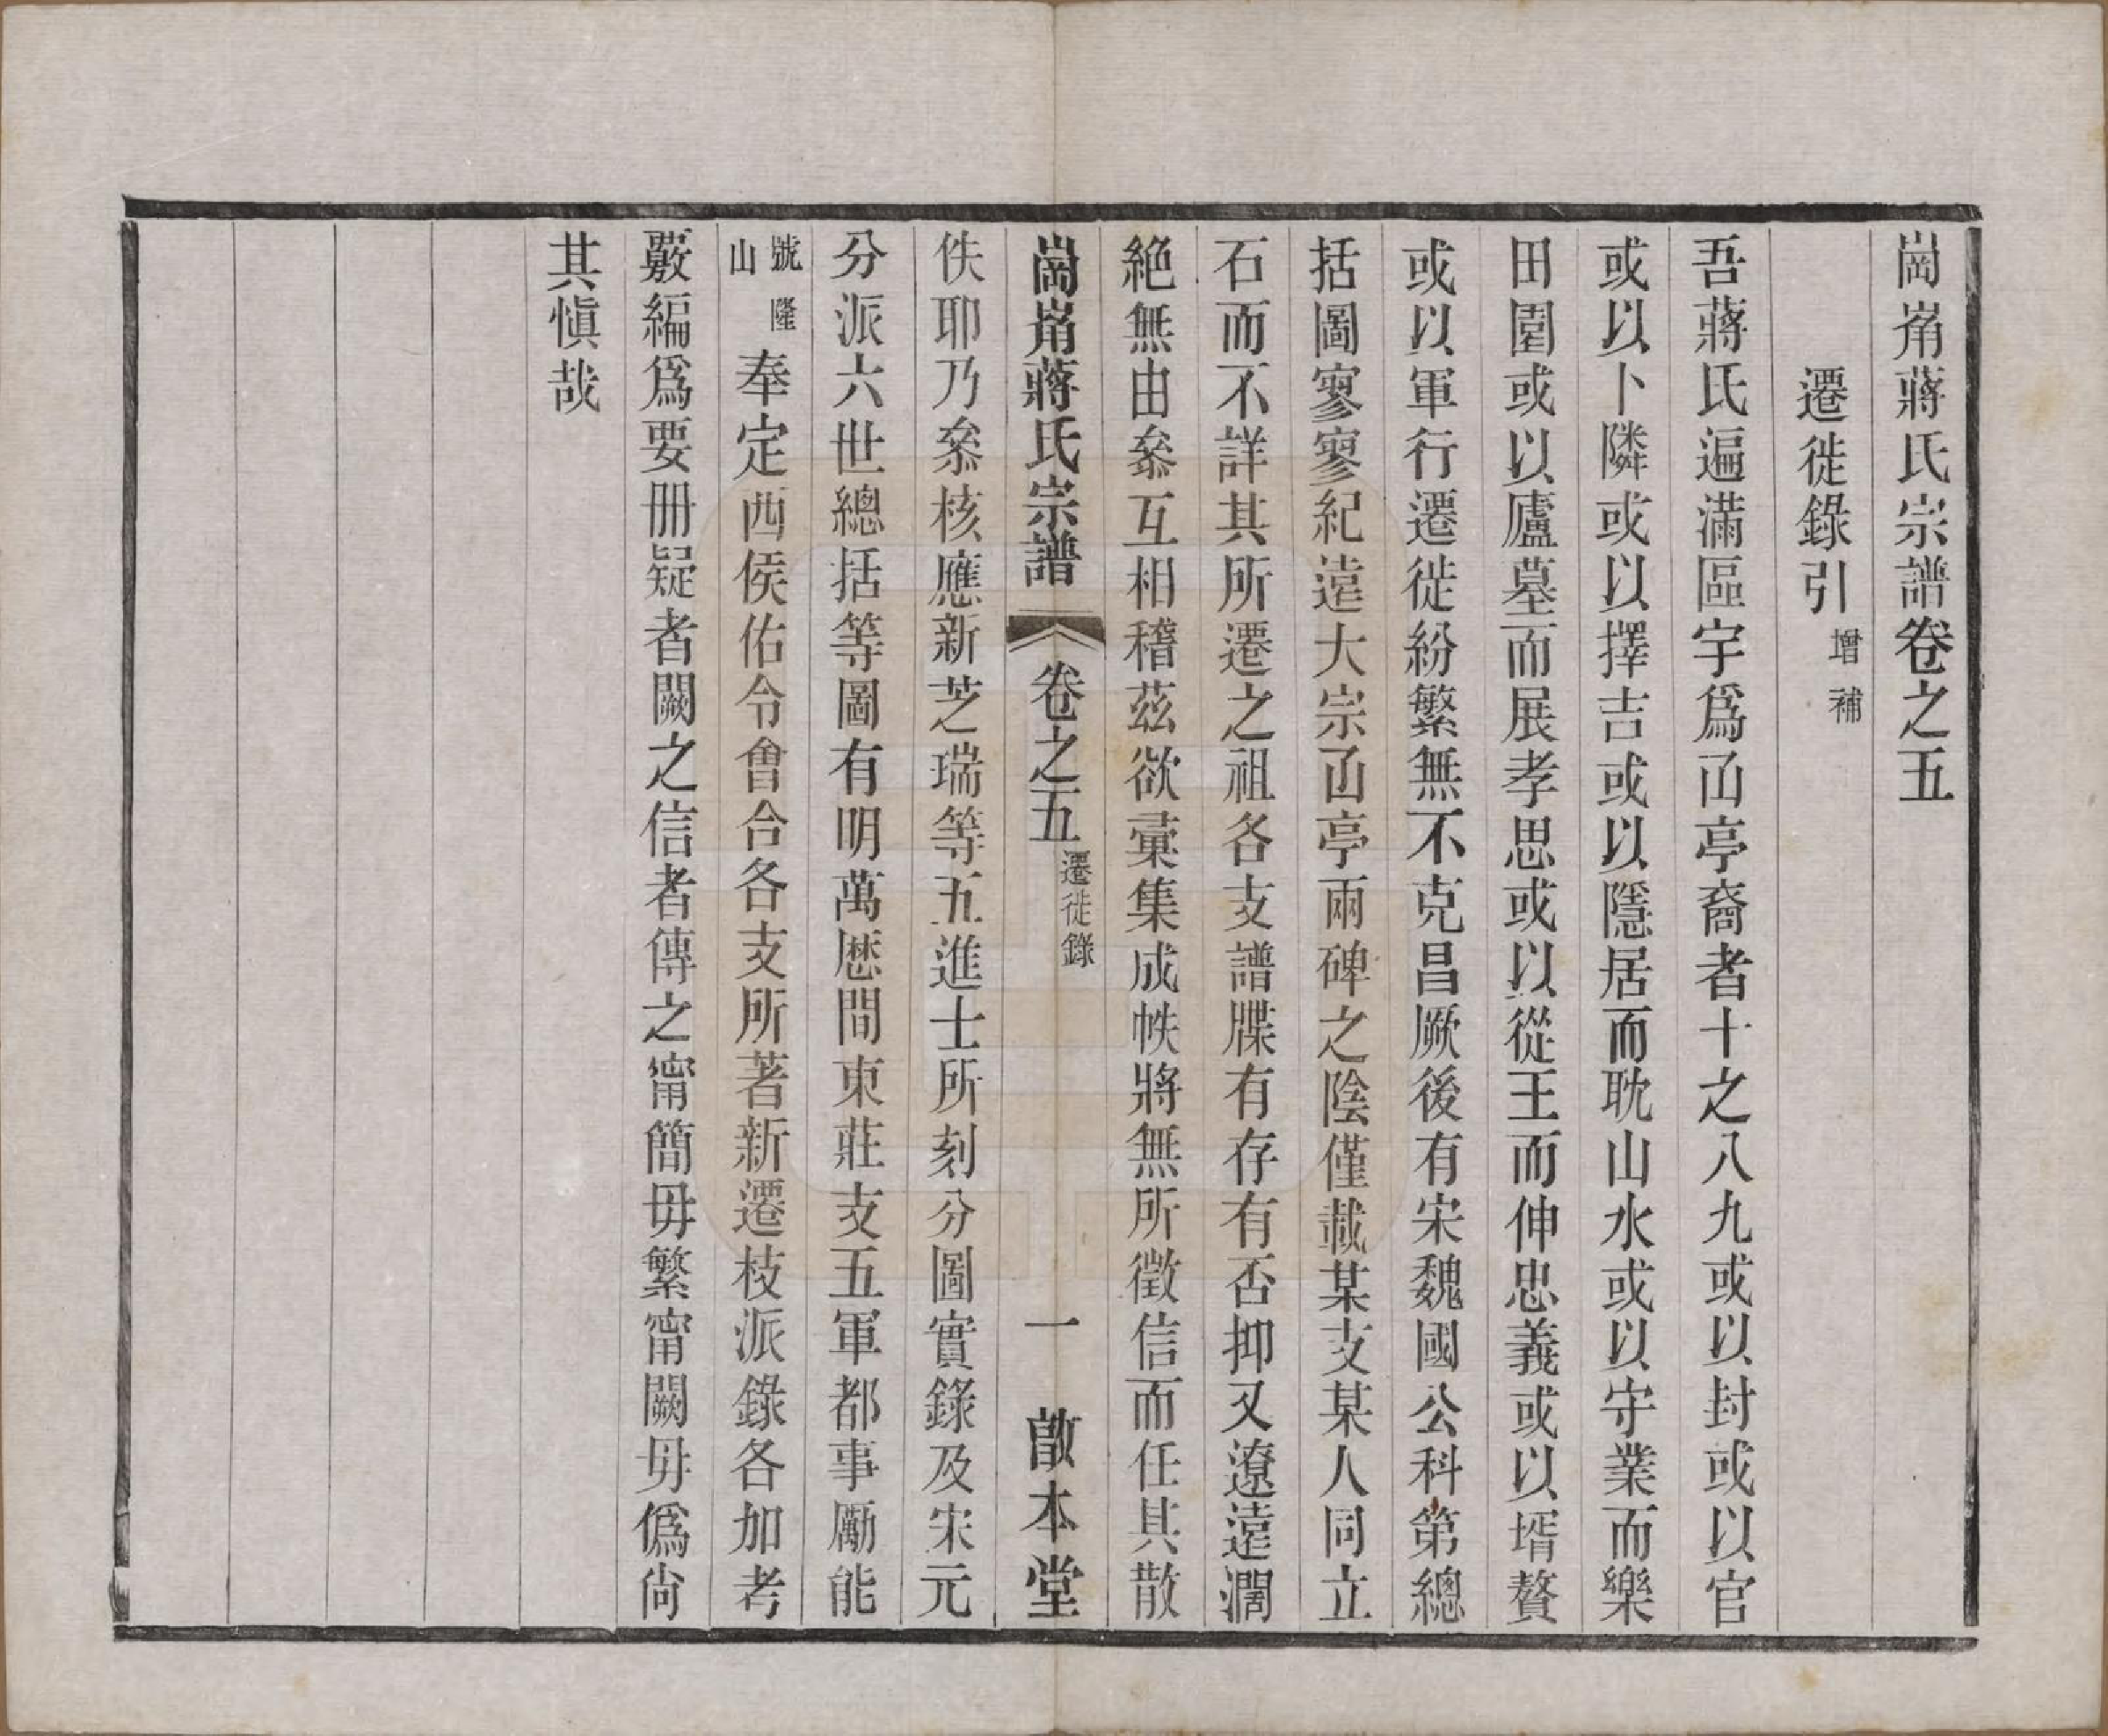 崗崗蔣氏宗譜卷之五
遷徙錄引增補
吾蔣氏遍滿區宇爲凾亭裔者十之八九或以封或以官
或以卜隣或以擇吉或以隱居而耽山水或以守業而樂
田園或以廬墓而展孝思或以從王而伸忠義或以壻贅
或以軍行遷徙紛繁無不克昌厥後有宋魏國公科第總
括圖寥寥紀遠大宗凾亭兩碑之陰僅載某支某人同立
石而不詳其所遷之祖各支譜牒有存有否抑又遼遠濶
絕無由叅互相稽茲欲彙集成帙將無所徵信而任其散
崗崗蔣氏宗譜 卷之五 遷徙錄 一 啟本堂
佚耶乃叅核應新芝瑞等五進士所刻分圖實錄及宋元
分派六世總括等圖有明萬厯間東莊支五軍都事勵能
號隆山奉定西侯佑令會合各支所著新遷枝派錄各加考
覈編爲要冊疑者闕之信者傳之甯簡毋繁甯闕毋僞尙
其愼哉